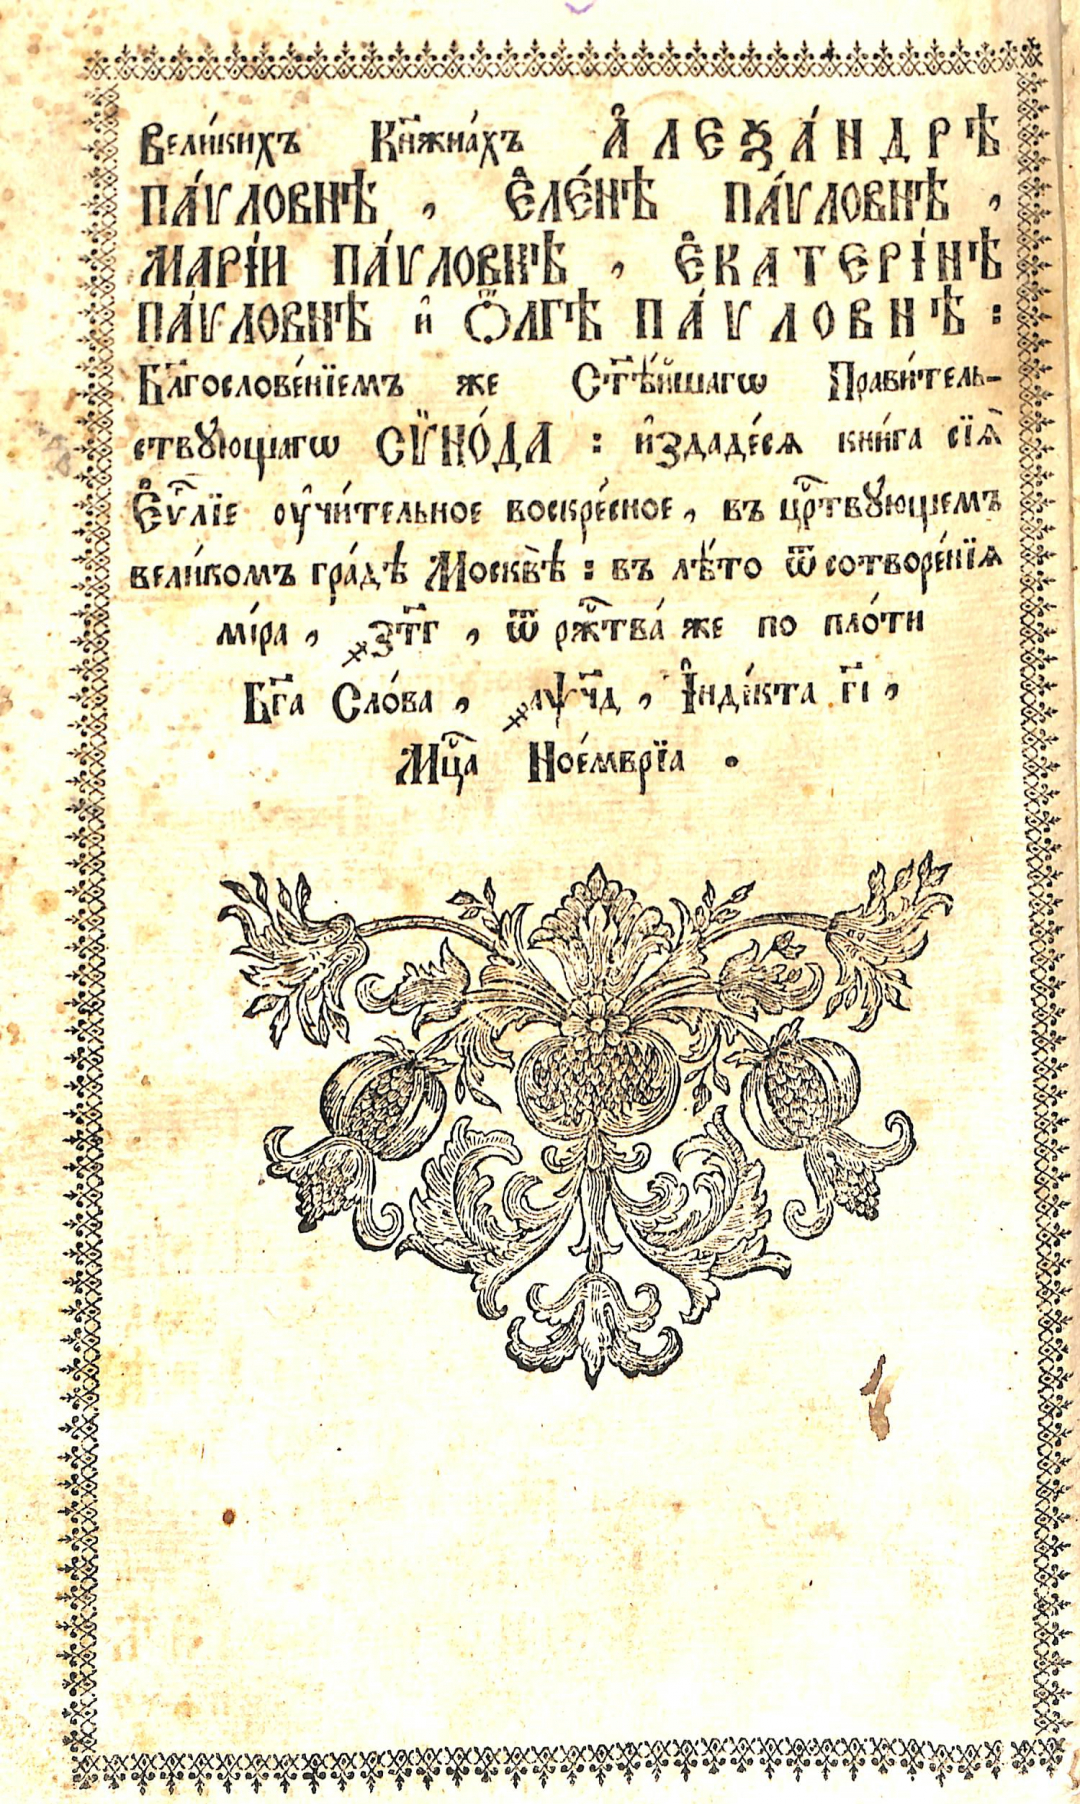 Вели́кихъ Кн҃жна́хъ А҆ЛЕѮА́НДРѢ
ПА́ѴЛОВНѢ , Е҆ЛЕ́НѢ ПА́ѴЛОВНѢ ,
МАРІ́И ПА́ѴЛОВНѢ , Е҆КАТЕРІ́НѢ
ПА́ѴЛОВНѢ и҆ Ѻ҆́ЛГѢ ПА́ѴЛОВНѢ :
Бл҃гослове́нїемъ же Ст҃ѣ́йшагѡ Прави́тель-
ствꙋющагѡ СѴ̈НО́ДА : и҆здаде́сѧ кни́га сїѧ̀
Е҆ѵⷢ҇лїе ᲂу҆чи́тельное воскре́сное , въ црⷭ҇твꙋющемъ
вели́комъ гра́дѣ Москвѣ̀ : въ лѣ́то ѿ сотворе́нїѧ
мі́ра , ҂зт҃г , ѿ ржⷭ҇тва́ же по пло́ти
Бг҃а Сло́ва , ҂аѱч҃д , І҆нді́кта г҃і ,
Мцⷭ҇а Ное́мврїа .